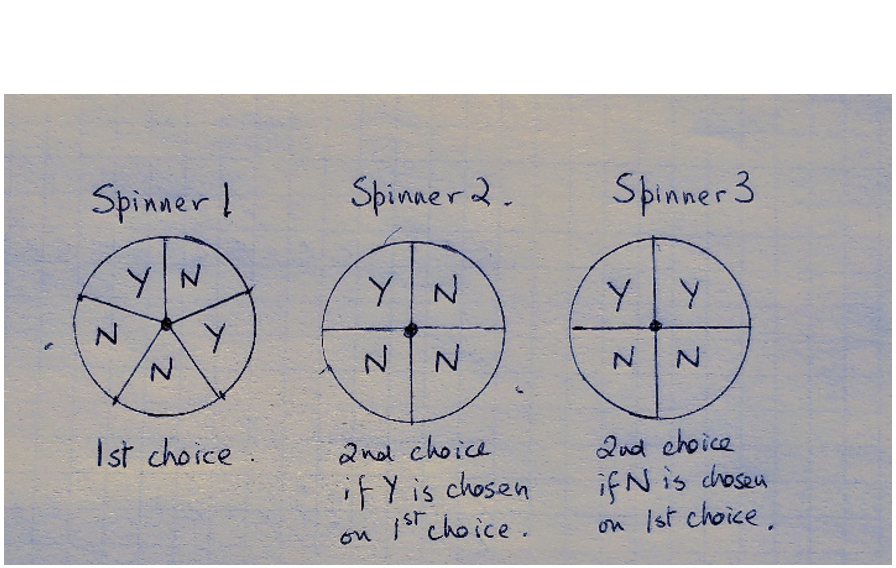 Spinner 1
Y N
N Y
N
1st choice.
Spinner 2.
Y N
N N
2nd choice
if Y is chosen
on 1st choice.
Spinner 3
Y Y
N N
2nd choice
if N is chosen
on 1st choice.